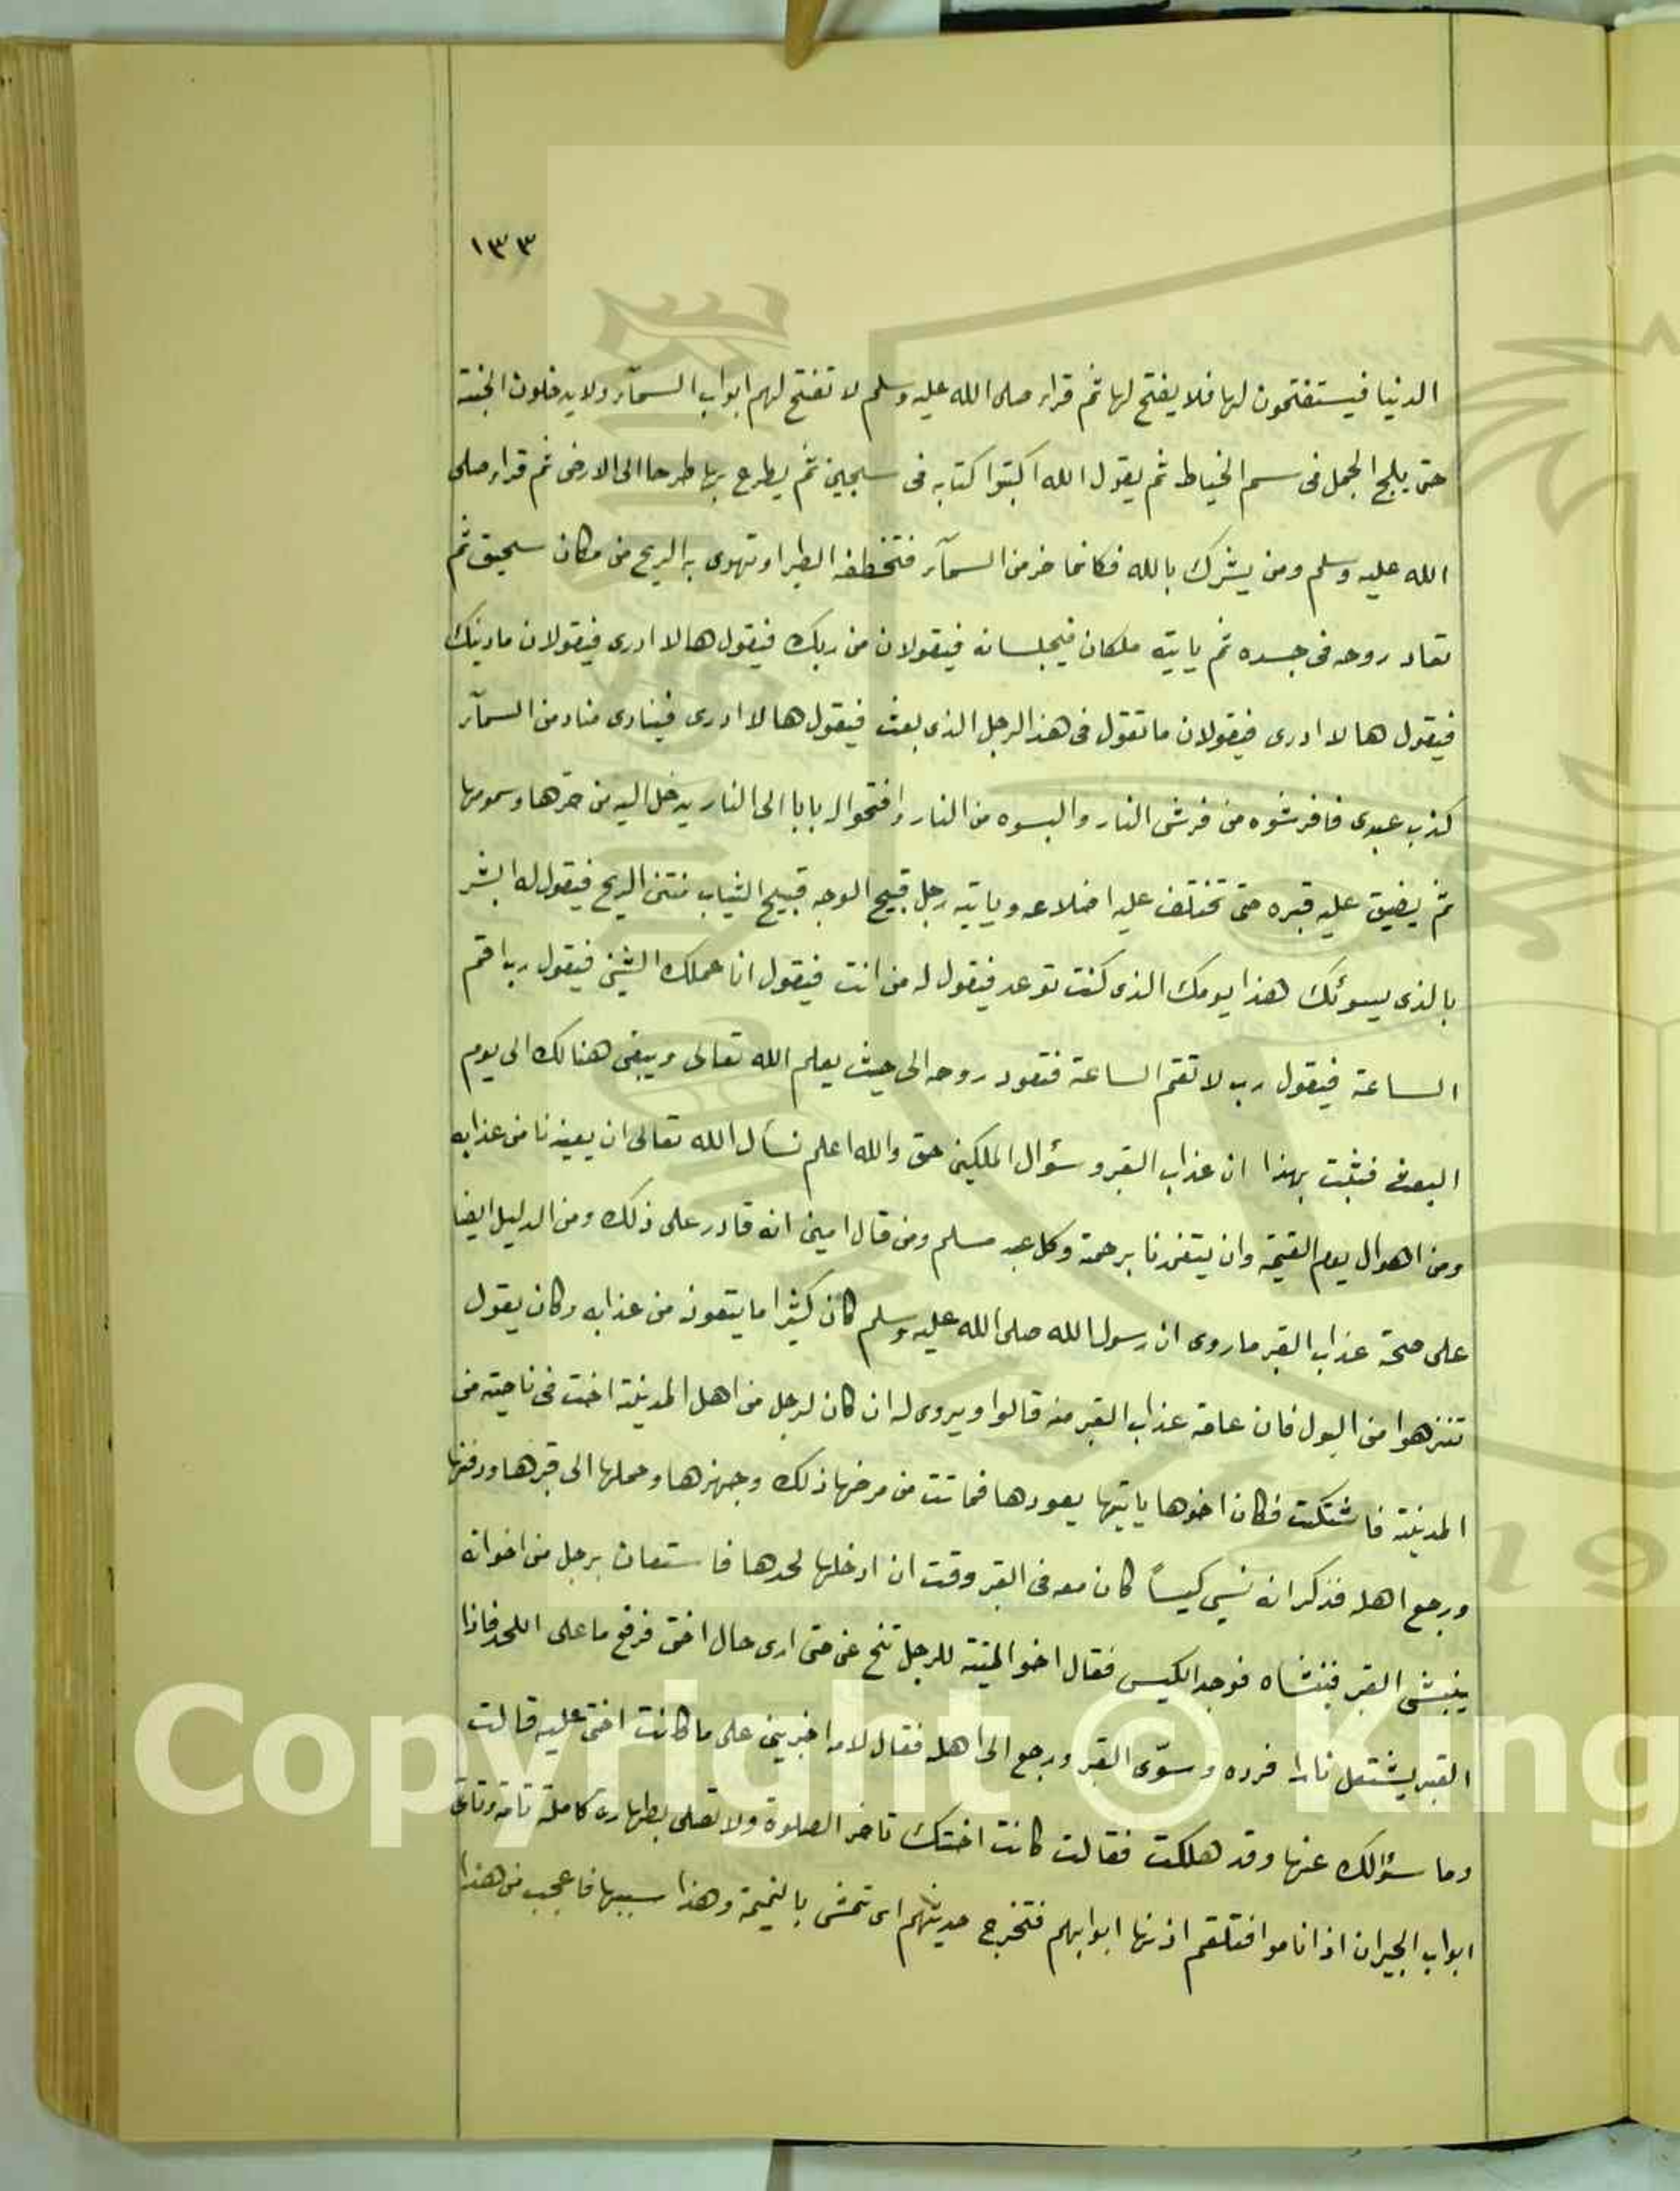 ١٣٣
الدنيا فيستفتحون لها فلا يفتح لها ثم قرأ صلى الله عليه وسلم لا تفتح لهم ابواب السمآء ولا يدخلون الجنة
حتى يلج الجمل فى سم الخياط ثم يقول الله اكتبوا كتابه فى سجين ثم يطرح بها طرحا الى الارض ثم قرأ صلى
الله عليه وسلم ومن يشرك بالله فكانما خر من السمآء فتخطفه الطير او تهوى به الريح من مكان سحيق ثم
تعاد روحه فى جسده ثم ياتيه ملكان فيجلسانه فيقولان من ربك فيقول هالا ادرى فيقولان ما دينك
فيقول هالا ادرى فيقولان ما تقول فى هذ الرجل الذى بعث فيقول هالا ادرى فينادى مناد من السمآء
كذب عبدى فافرشوه من فرش النار والبسوه من النار وافتحوا له بابا الى النار يدخل اليه من حرها وسمومها
ثم يضيق عليه قبره حتى تختلف عليه اضلاعه وياتيه رجل قبيح الوجه قبيح الثياب منتن الريح فيقول له ابشر
بالذى يسوئك هذا يومك الذى كنت توعد فيقول له من انت فيقول انا عملك الشين فيقول رب اقم
الساعة فيقول رب لا تقم الساعة فتعود روحه الى حيث يعلم الله تعالى ويبقى هنالك الى يوم
البعث فثبت بهذا ان عذاب القبر وسؤال الملكين حق والله اعلم نسأل الله تعالى ان يعيذنا من عذابه
ومن اهوال يوم القيمة وان يتغمدنا برحمة وكل عبد مسلم ومن قال امين انه قادر على ذلك ومن الدليل ايضا
على صحة عذاب القبر ما روى ان رسول الله صلى الله عليه وسلم كان كثيرا ما يتعوذ من عذابه وكان يقول
تنزهوا من البول فان عامة عذاب القبر منه قالوا ويروى له ان كان لرجل من اهل المدينة اخت فى ناحية من
المدينة فاشتكت فكان اخوها ياتيها يعودها فماتت من مرضها ذلك وجهزها وحملها الى قبرها ودفنها
ورجع اهله فذكر انه نسي كيساً كان معه فى القبر وقت ان ادخلها لحدها فاستعان برجل من اخوانه
ينبش القبر فنبشاه فوجد الكيس فقال اخو الميتة للرجل تنح عنى حتى ارى حال اختى فرفع ما على اللحد فاذا
القبر يشتعل نارا فرده وسوّى القبر ورجع الى اهله فقال لامه اخبرينى على ما كانت اختى عليه قالت
وما سؤالك عنها وقد هلكت فقالت كانت اختك تاخر الصلوة ولا تصلى بطهارة كاملة تامة وتاتى
ابواب الجيران اذا ناموا فتلقم اذنها ابوابهم فتخرج حديثهم اى تمشى بالنميمة وهذا سببها فاعجب من هذا
Copyright © King